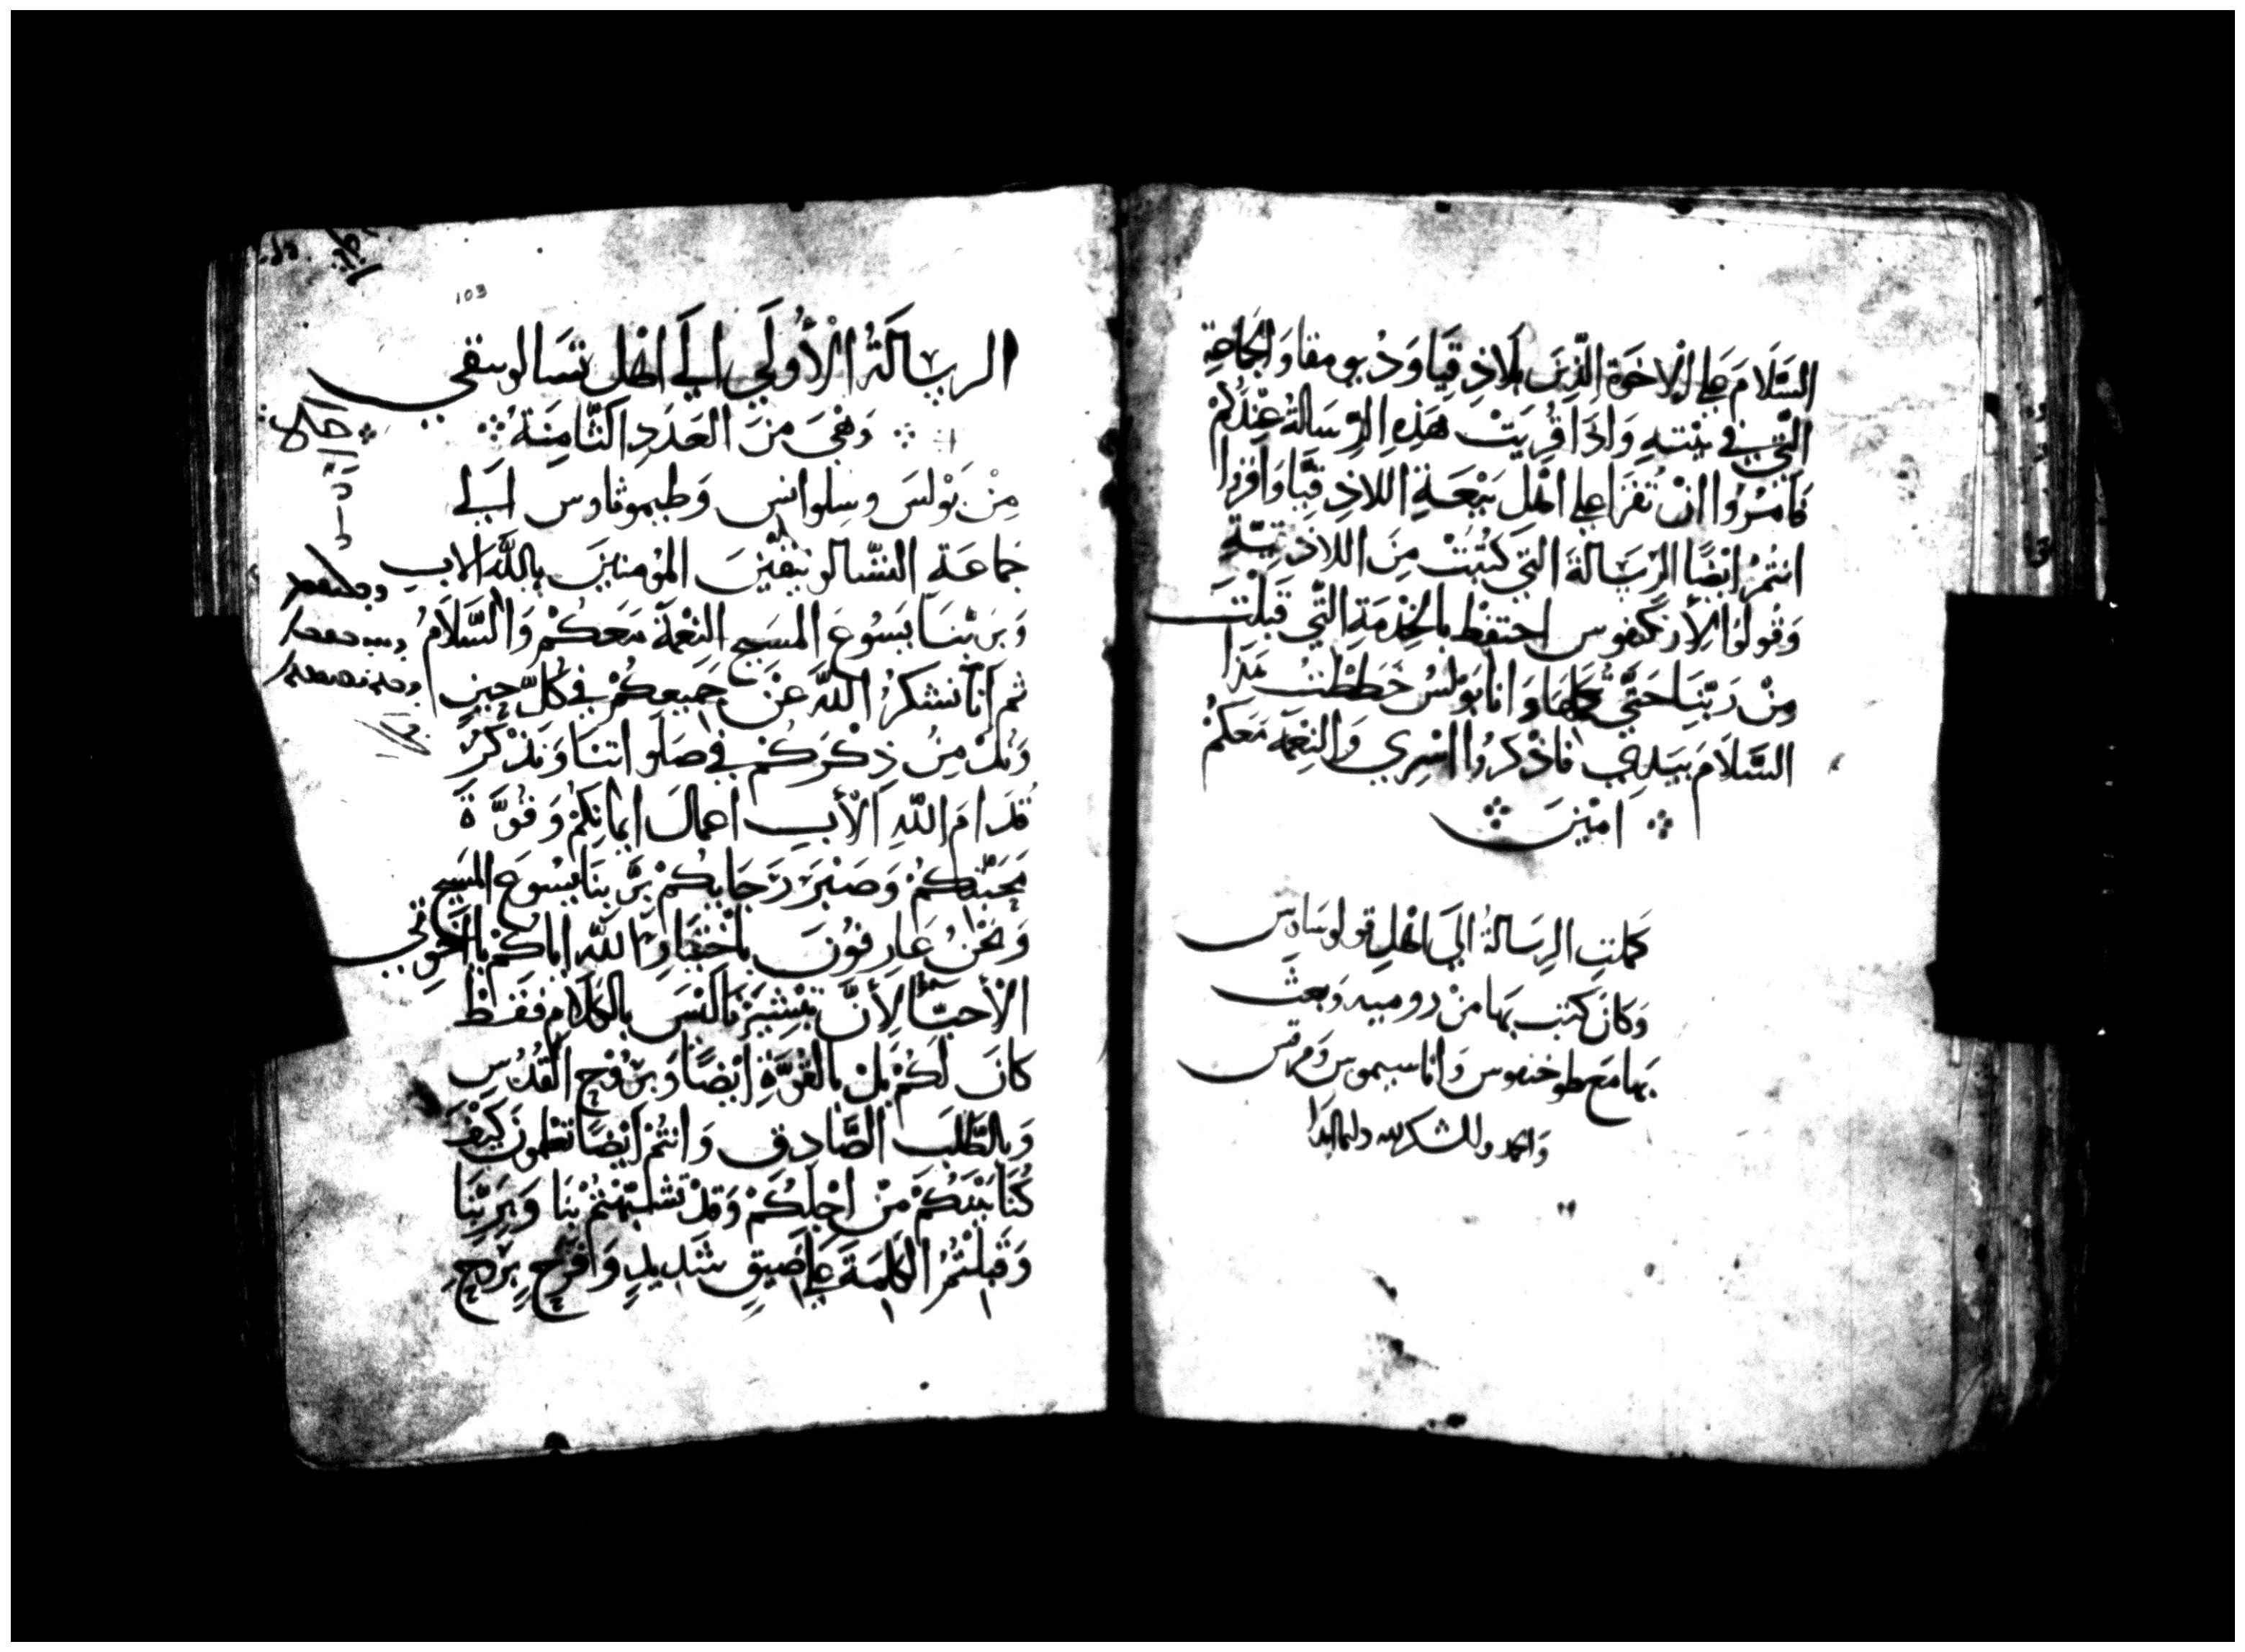 السَّلَامَ عَلى الاخوَة الَّذِينَ بلاذِقيَا وَدُ يومفا وَالجَاعَةِ
الَّتِي في بيْتهِ وَاذَا قُرِيَتْ هَذِهِ الرِّسَالةُ عِنْدَكُمْ
فَامُرُوا انْ تُقرَا علي اهْل بَيْعَةِ اللاذِقِيَّا وَاقروا
انتُمُ ايْضًا الرّسَالةَ التِي كُتبَتْ مِنَ اللاذقيّةِ
وَقُولوُا لِأَرْكفوس احتفِظ بالخِدْمَةِ التَّي قَبلْتَ
مِنْ رَبّنَا حَتَّي تُكلهَا وَ انا بَوْلسُ خَططْتُ هَذَا
السَّلاَم بيَدِي فاذْكرُوا اسْرِي وَالنِعْمَة مَعَكُمْ
امِيْنَ
كملتِ الرِسَالةُ الي اهْلِ قولوسَاوس
وَكانَ كتب بهَا منْ روميه وَبَعثَ
بهَا مَع طوخنقوس وَاناسيموس وَمرقس
وَالحمد والشكر لله دايما ابدا
103
الرسَالَةُ الْأُولَي الَي اهْل تسَالونيقي
وَهْيَ منَ العَدَدِ الثَّامِنَة
مِنْ بَوْلسَ وسِلوانس وَطيموثاوس الَي
جَماعَة التسَّالونيقيْنَ المؤمنِينَ باللَّه الاب
وَبرَبّنَا يَسُوع المَسِيح النِعْمَةُ مَعَكُمْ وَالسَّلاَمُ
ثم انّا نشكرُ اللّه عنْ جَمِيعِكمُ في كُلّ حِينٍ
وَنُدْمِنُ ذِكْرَكمْ في صَلَواتنَا وَنَذْكرُ
قدَامَ اللّهِ الأبِ اعمَالَ ايمَانِكمُ وَقُوَّةَ
مَحَبّتكمُ وَصَبْرَ رَجَايكُمْ برَّبنَا يَسُوعَ المَسِيح
وَنحْنُ عَارِفوُنَ باخْتيَارِ اللّه اياكُمْ يا اخوَتِي
الأحبّا لِأنَّ تبْشِيرَنا لَيْسَ بالكلَامِ فقَطْ
كانَ لَكُمْ بَلْ بالقُوَّةِ ايْضًا وَبرُوْحِ القُدُسِ
وَبالطَّلبَ الصَّادِق وَانتمُ ايْضًا تعْلمونَ كيْفَ
كُنّا بَيْنَكُمْ منْ اجْلِكمْ وَقدْ تشبّهْتمُ بْنَا وَبرَبّنَا
وَقَبلْتُمُ الكلِمَةَ عَلي ضيقٍ شَدِيدٍ وَافرَحِ برُوْحِ